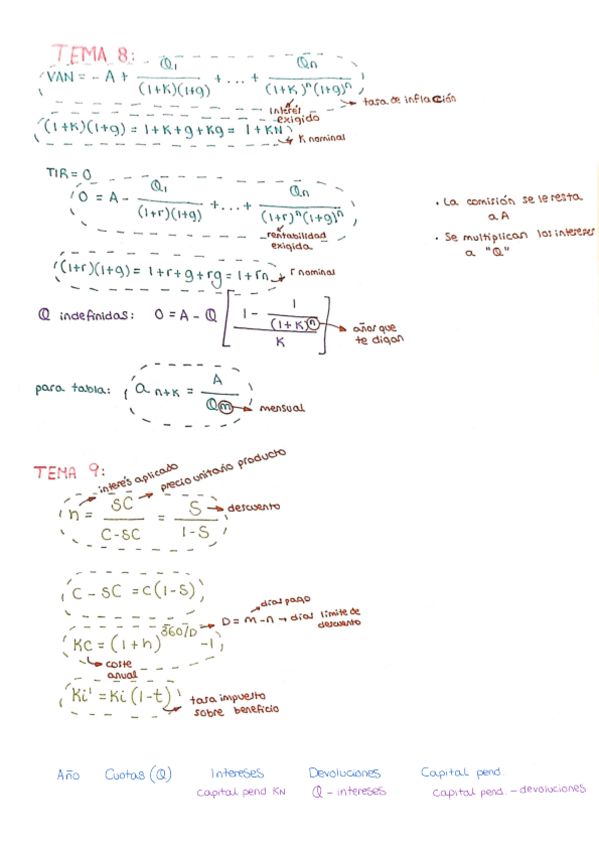 TEMA 8:
VAN = - A + Q1 / (1+K)(1+g) + ... + Qn / (1+K)^n (1+g)^n
tasa de inflación
interés exigido
(1+K)(1+g) = 1+K+g+Kg = 1+KN
K nominal
TIR = 0
0 = A - Q1 / (1+r)(1+g) + ... + Qn / (1+r)^n (1+g)^n
rentabilidad exigida
· La comisión se le resta
a A
· Se multiplican los intereses
a "Q"
(1+r)(1+g) = 1+r+g+rg = 1+rn
r nominal
Q indefinidas: 0 = A - Q [ 1 - 1 / (1+K)^n / K ]
años que
te digan
para tabla: a n+K = A / Qm
mensual
TEMA 9:
interés aplicado
precio unitario producto
h = SC / C-SC = S / 1-S
descuento
C - SC = C(1-S)
días pago
D = m-n → días límite de
descuento
KC = (1+h)^360/D -1
coste
anual
Ki' = Ki (1-t)
tasa impuesto
sobre beneficio
Año Cuotas (Q) Intereses Devoluciones Capital pend.
capital pend KN Q - intereses capital pend. - devoluciones